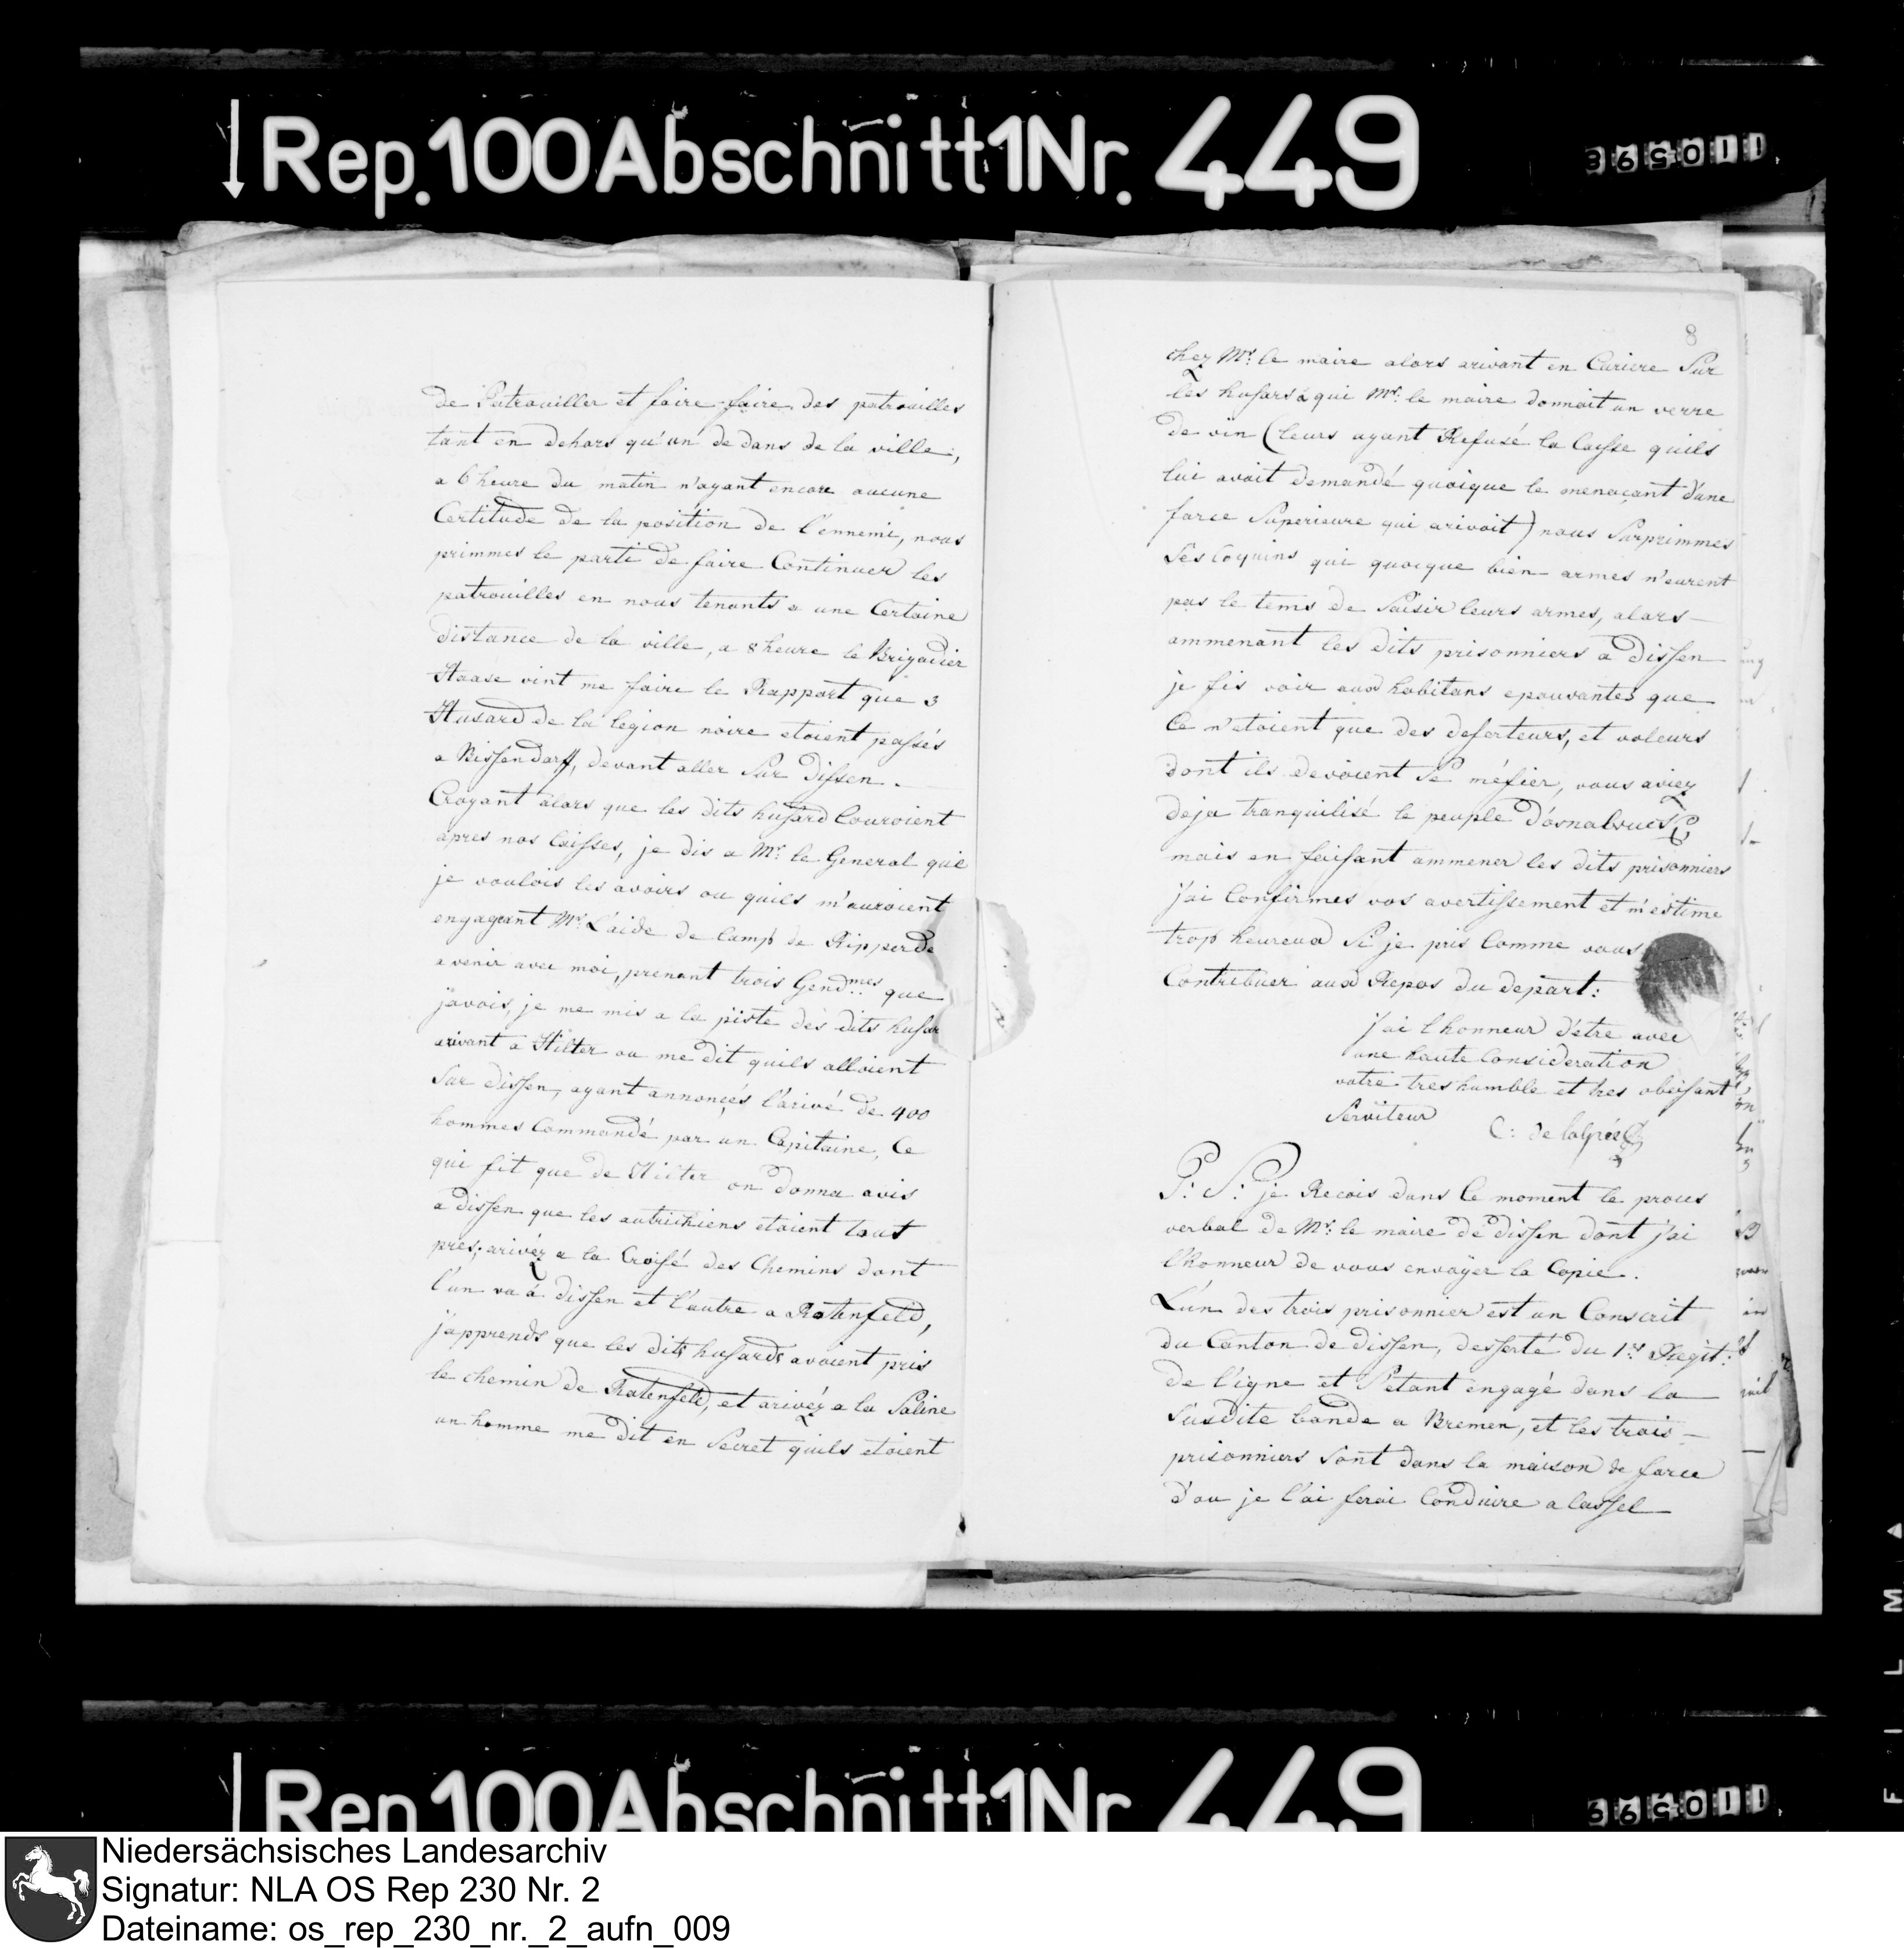 Rep.100Abschnitt1Nr.449
de Patrouiller et faire faire des patrouilles
tant en dehors qu'an de dans de la ville,
a 6 heure du matin n'ayant encore aucune
Certitude de la position de l'ennemi, nous
primmes le parti de faire Continuer les
patrouilles en nous tenants a une Certaine
distance de la ville, a 8 heure le Brigadier
Haase vint me faire le Rapport que 3
Husard de la legion noire etoient passés
a Bissendorff, devant aller Sur dissen.
Croyant alors que les dits husard Couroient
apres nos Caisses, je dis a Mr. le General que
je voulois les avoirs ou quils m'auroient
engageant Mr. L'aide de Camp de Ripperde
a venir avec moi, prenant trois Gendmes que
j'avois, je me mis a la piste des dits husar
arivant a Hilter on me dit quils alloient
Sur dissen, ayant annonçés l'arivé de 400
hommes Commandé par un Capitaine, Ce
qui fit que de Hilter on donna avis
a dissen que les autrichiens etoient tout
pres; arivéz a la Croisé des Chemins dont
l'un va á dissen et l'autre a Rotenfeld,
j'apprends que les dits husards avoient pris
le chemin de Rotenfeld, et arivéz a la Saline
un homme me dit en Secret quils etoient
8
chez Mr. le maire alors arivant en Cariere Sur
les husars a qui Mr. le maire donnoit un verre
de vin (leurs ayant Refusé la Caisse quils
lui avoit demandé quoique le menaçant d'une
force Superieure qui arivoit) nous Surprimmes
Ses Coquins qui quoique bien armes n'eurent
pas le tems de Saisir leurs armes, alors
ammenant les dits prisonniers a dissen
je fis voir aux habitans epouvantes que
Ce n'etoient que des deserteurs, et voleurs
dont ils devoient Se méfier, vous aviez
deja tranquilisé le peuple d'osnabruck
mais en faisant ammener les dits prisonniers
j'ai Confirmes vos avertissement et m'estime
trop heureux Si je pris Comme vous
Contribuer aux Repos du depart:
j'ai l'honneur d'etre avec
une haute Consideration
votre tres humble et tres obeisant
Serviteur
C: de
P: S: je Recois dans Ce moment le proces
verbal de Mr. le maire de dissen dont j'ai
l'honneur de vous envoÿer la Copie.
L'ún des trois prisonnier est un Conscrit
du Canton de dissen, desserté du 1er Regit:
de l'igne et S'etant engagé dans la
Susdite bande a Bremen, et les trois
prisonniers Sont dans la maison de force
d'ou je l'ai ferai Conduire a Cassel
Rep 100Abschnitt1Nr 449
FILM
Niedersächsisches Landesarchiv
Signatur: NLA OS Rep 230 Nr. 2
Dateiname: os_rep_230_nr._2_aufn_009